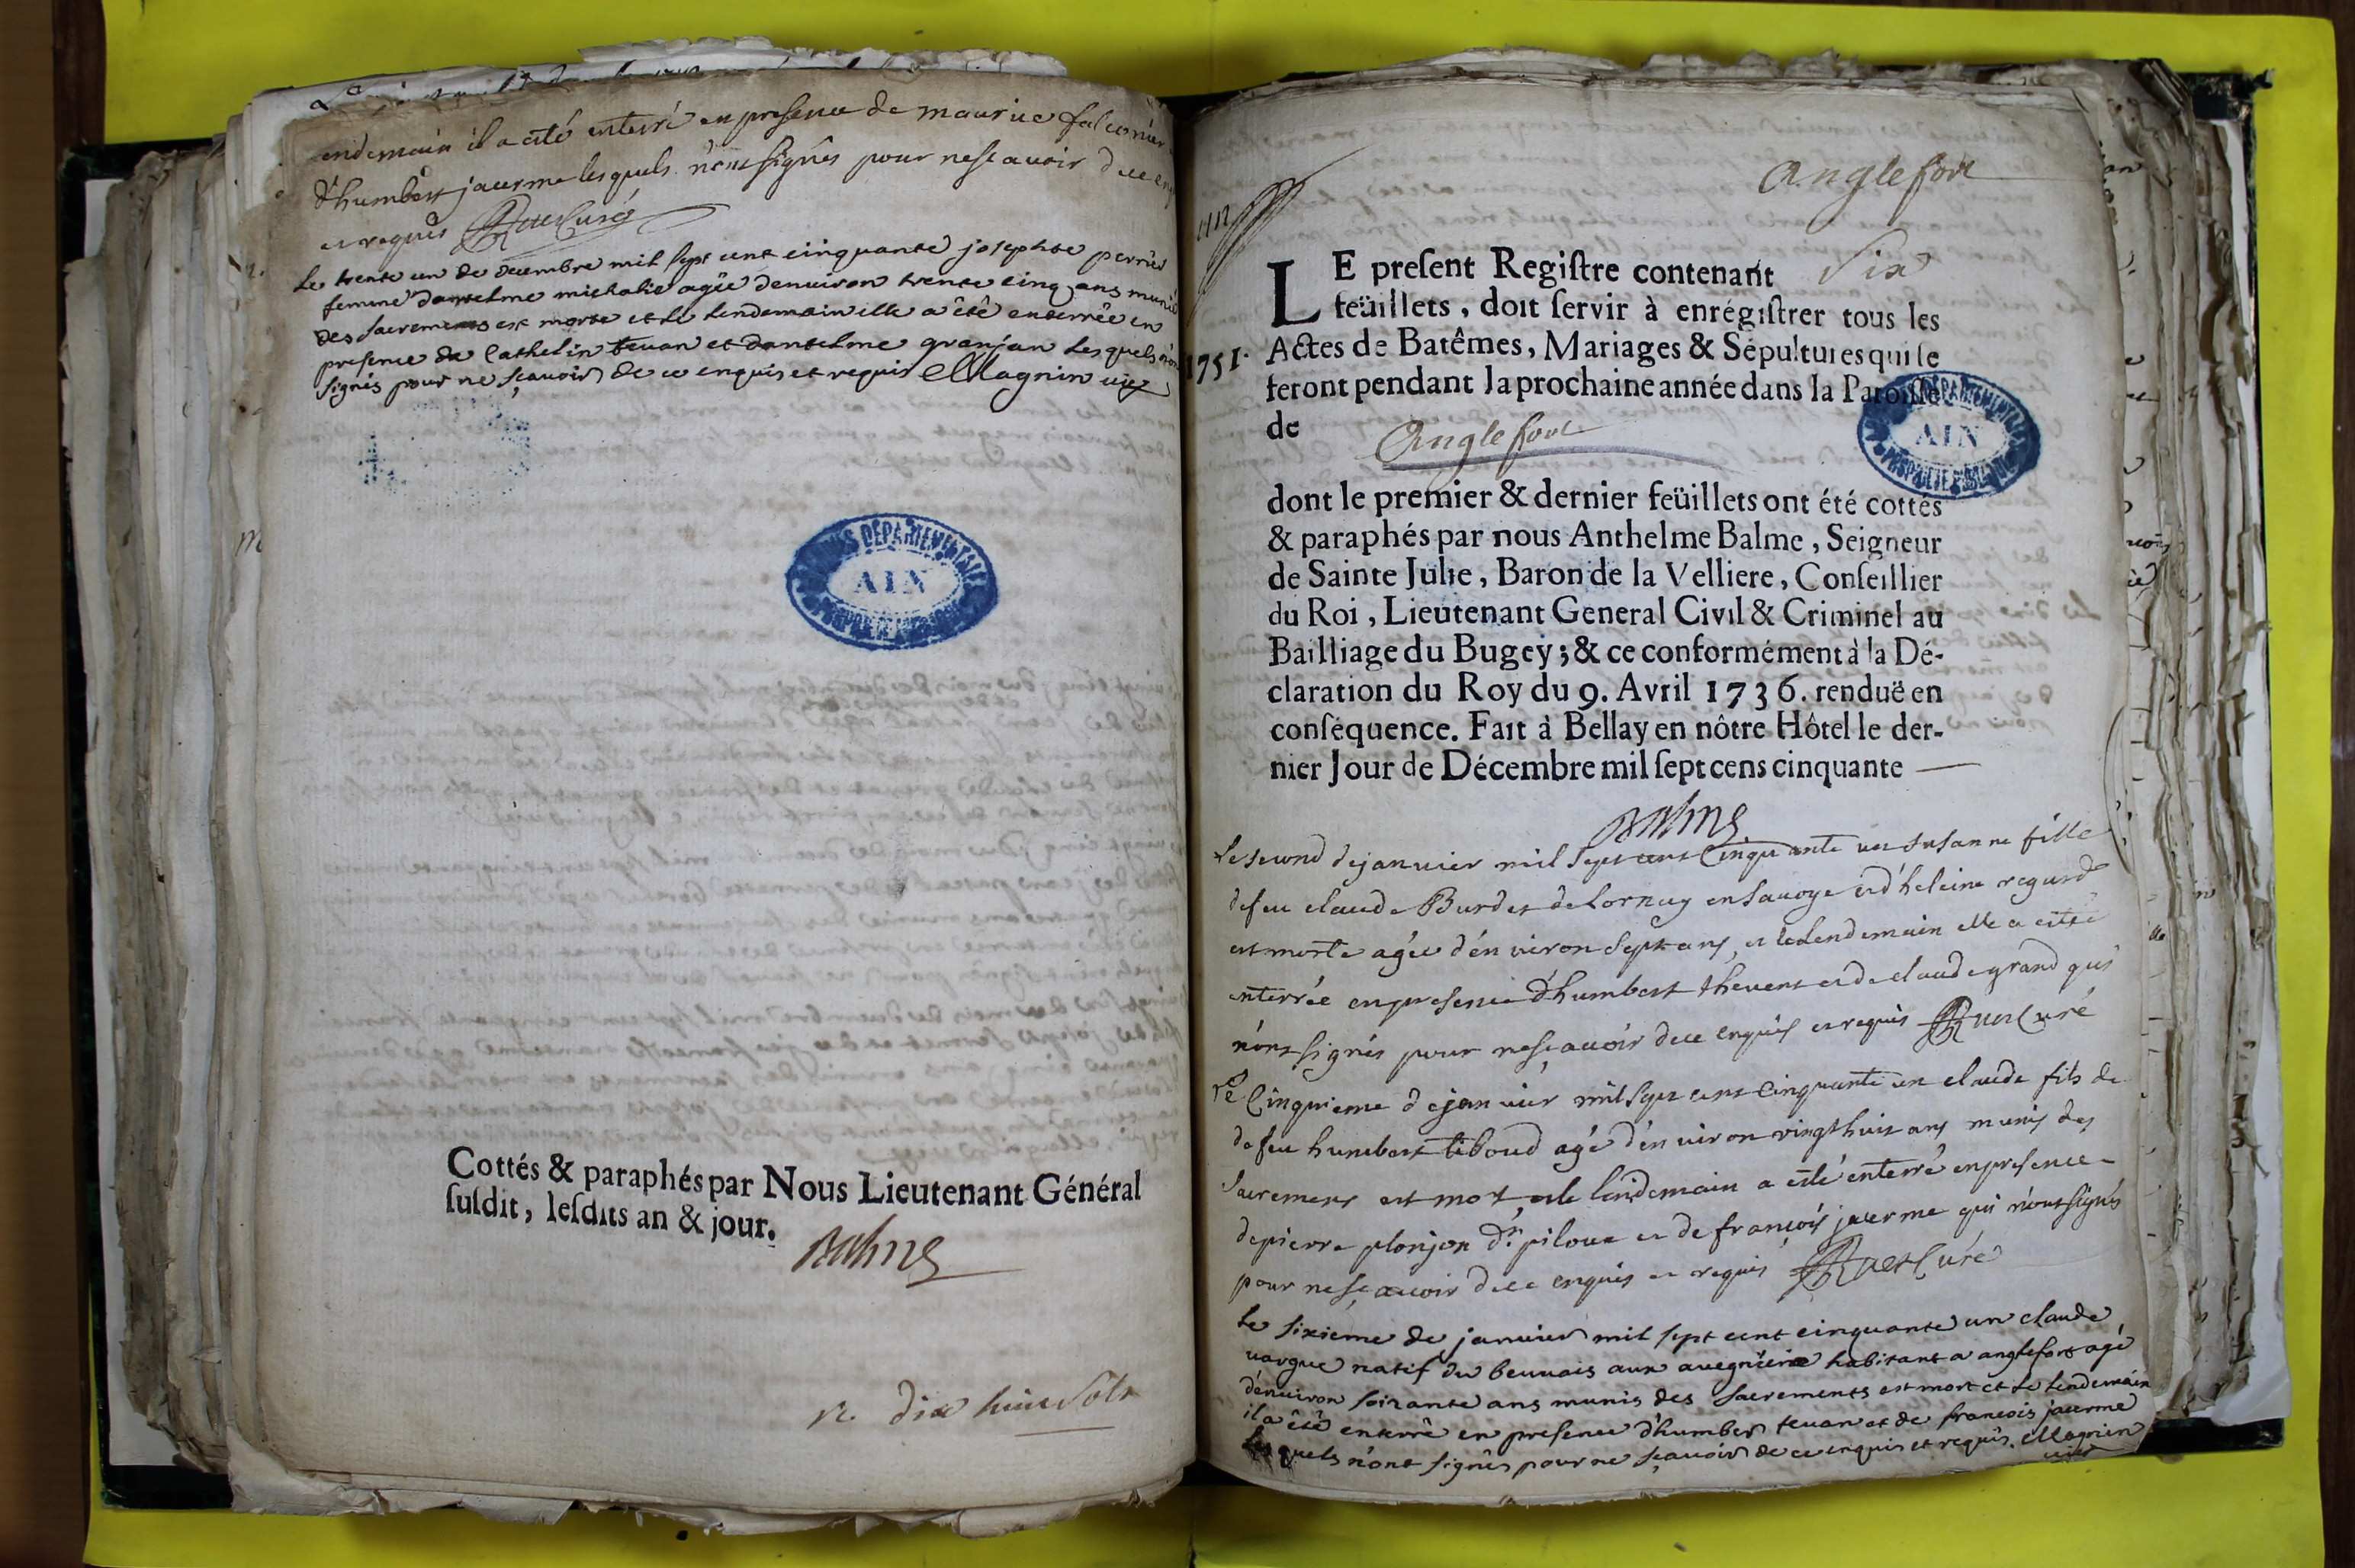 endemain il a esté enterré en presence de maurice falconier
d'humbert jacerme lesquels n'ont signés pour nescavoir de ce enq
et requis Curé
Le trente un de decembre mil sept cent cinquante josephte perrier
femme d'antelme michalie agée denviron trente cinq ans munie
des sacrements est morte et le lendemain elle a êtê enterrêe en
presence de Cathelin tevan et dantelme granjan lesquels n'on
signés pour ne sçavoir de ce enquis et requis Magnin vic
AIN
Cottés & paraphés par Nous Lieutenant Général
ſuſdit, leſdits an & jour.
Balme
dix huit sols
Anglefort
LE preſent Regiſtre contenant Six
feüillets, doit ſervir à enrégiſtrer tous les
1751. Actes de Batêmes, Mariages & Sépultures qui ſe
feront pendant la prochaine année dans la Paroiſſe
de Anglefort
AIN
dont le premier & dernier feüillets ont été cottés
& paraphés par nous Anthelme Balme, Seigneur
de Sainte Julie, Baron de la Velliere, Conſeillier
du Roi, Lieutenant General Civil & Criminel au
Bailliage du Bugey; & ce conformément à la Dé-
claration du Roy du 9. Avril 1736. renduë en
conſéquence. Fait à Bellay en nôtre Hôtel le der-
nier Jour de Décembre mil ſept cens cinquante
Balme
Le second de janvier mil sept cent Cinquante un susanne fille
de feu claude Burdet de Lornay en Savoye et d'heleine regard
est morte agée d'environ sept ans, et le lendemain elle a estée
enterrée en presence d'humbert thevent et de claude grand qui
n'ont signés pour nesçavoir de ce enquis et requis Curé
Le Cinquieme de janvier mil sept cent Cinquante un claude fils de
de feu humbert tiboud agé d'environ vingthuit ans munis des
sacremens est mort et le lendemain a esté enterré en presence
de pierre plonjon dt piloux et de françois jacerme qui n'ont signés
pour nesçavoir de ce enquis et requis Curé
Le sixieme de janvier mil sept cent cinquante un claude
vargue natif du beuvais aux habitant a anglefort agé
d'environ soixante ans munis des sacrements est mort et le lendemain
il a êtê enterrê en presence d'humber tevan et de francois jacerme
lesquels n'ont signés pour ne sçavoir de ce enquis et requis. Magnin
vic